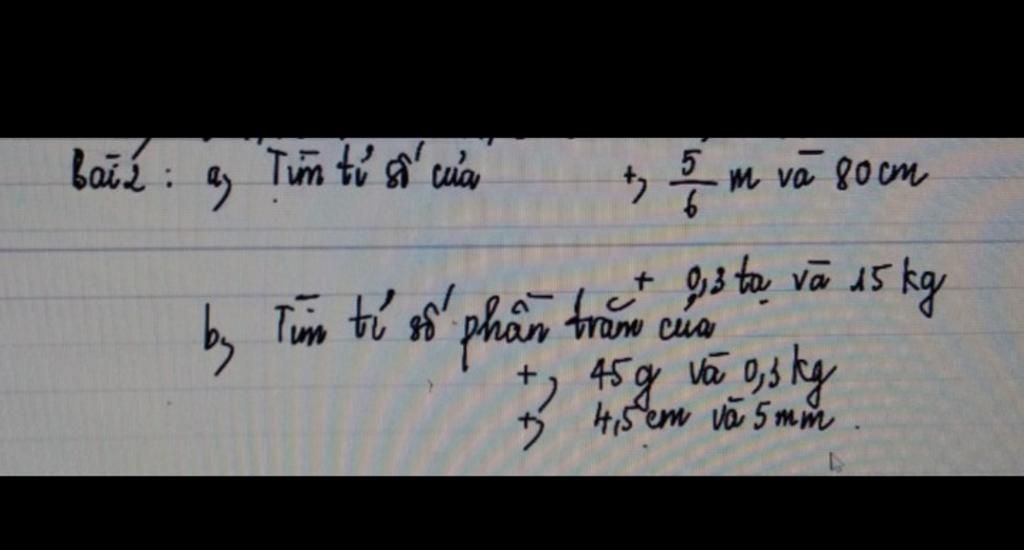 Bài 2 : a, Tìm tỉ số của +, 5/6 m và 80 cm
+ 0,3 tạ và 15 kg
b, Tìm tỉ số phần trăm của
+, 45g và 0,3 kg
+, 4,5 cm và 5 mm .